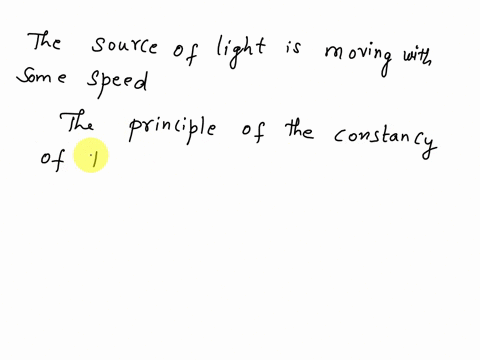 The source of light is moving with
some speed
The principle of the constancy
of